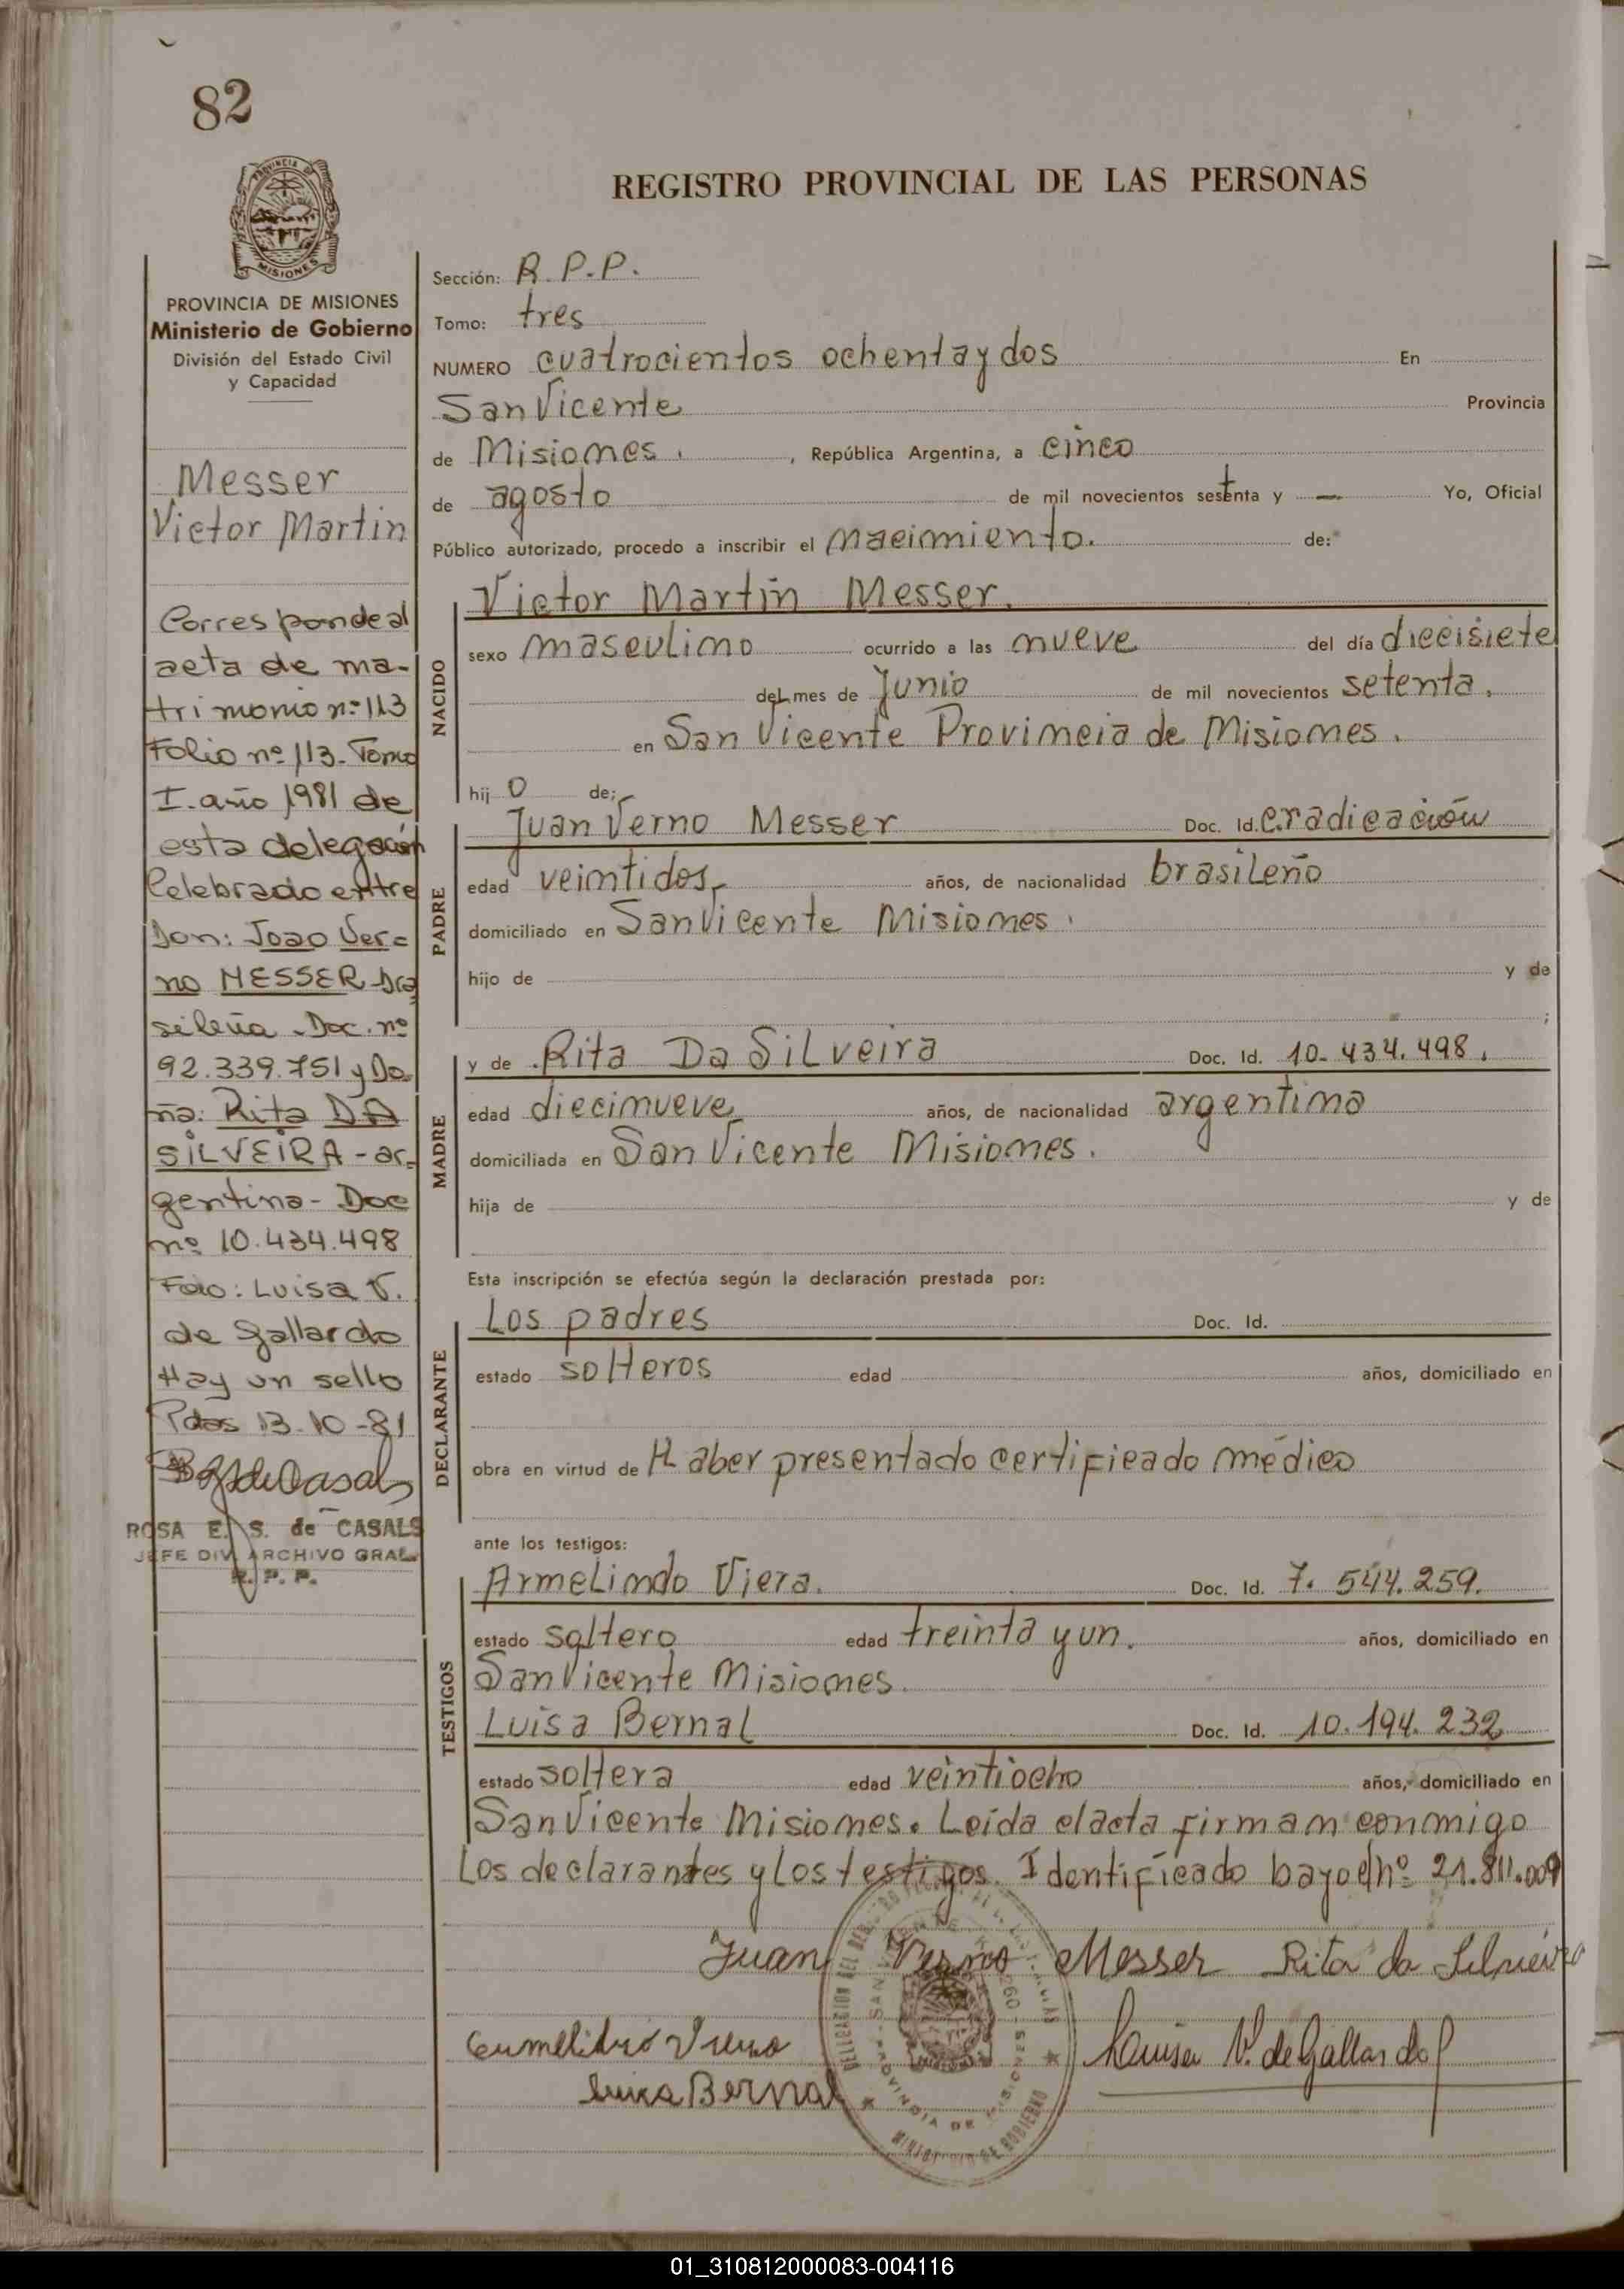 82
REGISTRO PROVINCIAL DE LAS PERSONAS
PROVINCIA DE
MISIONES
PROVINCIA DE MISIONES
Ministerio de Gobierno
División del Estado Civil
y Capacidad
Messer
Victor Martin
Corresponde al
acta de ma-
trimonio nº 113
Folio nº 113. Tomo
I. año 1981 de
esta delegación
Celebrado entre
Don: Joao Ver=
no MESSER Bra
sileña. Doc. nº
92.339.751 y Do
ña: Rita DA
SILVEIRA - ar-
gentina - Doc
nº 10.434.498
Fdo: Luisa V.
de Gallardo
Hay un sello
Pdas 13-10-81
ROSA E. S. de CASALS
JEFE DIV. ARCHIVO GRAL.
R. P. P.
Sección: R. P. P.
Tomo: tres
NUMERO cuatrocientos ochenta y dos En
San Vicente Provincia
de Misiones. , República Argentina, a cinco
de agosto de mil novecientos setenta y — Yo, Oficial
Público autorizado, procedo a inscribir el nacimiento. de:
NACIDO
Victor Martin Messer.
sexo masculino ocurrido a las nueve del día diecisiete
del mes de Junio de mil novecientos setenta.
en San Vicente Provincia de Misiones.
hij o de;
PADRE
Juan Verno Messer Doc. Id. c.radicación
edad veintidos, años, de nacionalidad brasileño
domiciliado en San Vicente Misiones.
hijo de y de
;
MADRE
y de Rita Da Silveira Doc. Id. 10. 434. 498.
edad diecinueve años, de nacionalidad argentina
domiciliada en San Vicente Misiones.
hija de y de
Esta inscripción se efectúa según la declaración prestada por:
DECLARANTE
Los padres Doc. Id.
estado solteros edad años, domiciliado en
obra en virtud de Haber presentado certificado médico
ante los testigos:
TESTIGOS
Armelindo Viera. Doc. Id. 7. 544. 259.
estado soltero edad treinta y un. años, domiciliado en
San Vicente Misiones.
Luisa Bernal Doc. Id. 10. 194. 232
estado soltera edad veintiocho años, domiciliado en
San Vicente Misiones. Leída el acta firman conmigo
Los declarantes y los testigos. Identificado bajo el nº 21.811.009
Juan Verno Messer Rita da Silveira
Luisa V. de Gallardo
Luisa Bernal
PROVINCIA DE MISIONES
MINISTERIO DE GOBIERNO
01_310812000083-004116